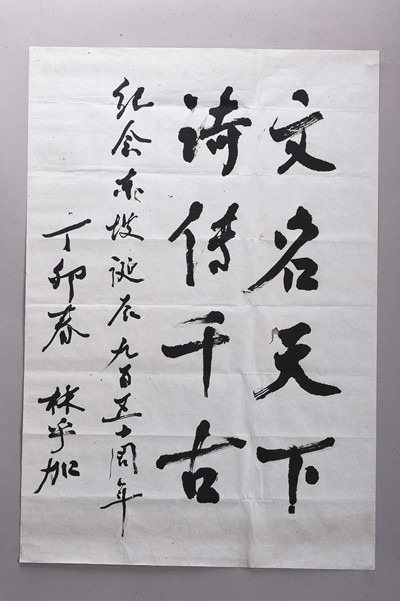 文名天下
诗传千古
纪念东坡诞辰九百五十周年
丁卯春 林乎加